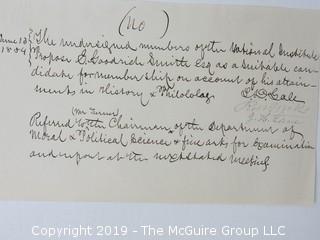 (No)
June 13
1854
The undersigned members of the National Institute
Propose S. Goodrich Smith Esq as a suitable can-
didate for membership on account of his attain-
ments in History & Philology
(Mr Turner)
Referred to the Chairman of the Department of
Moral & Political Science & fine arts for Examination
and report at the next stated meeting
Copyright 2019 - The McGuire Group LLC